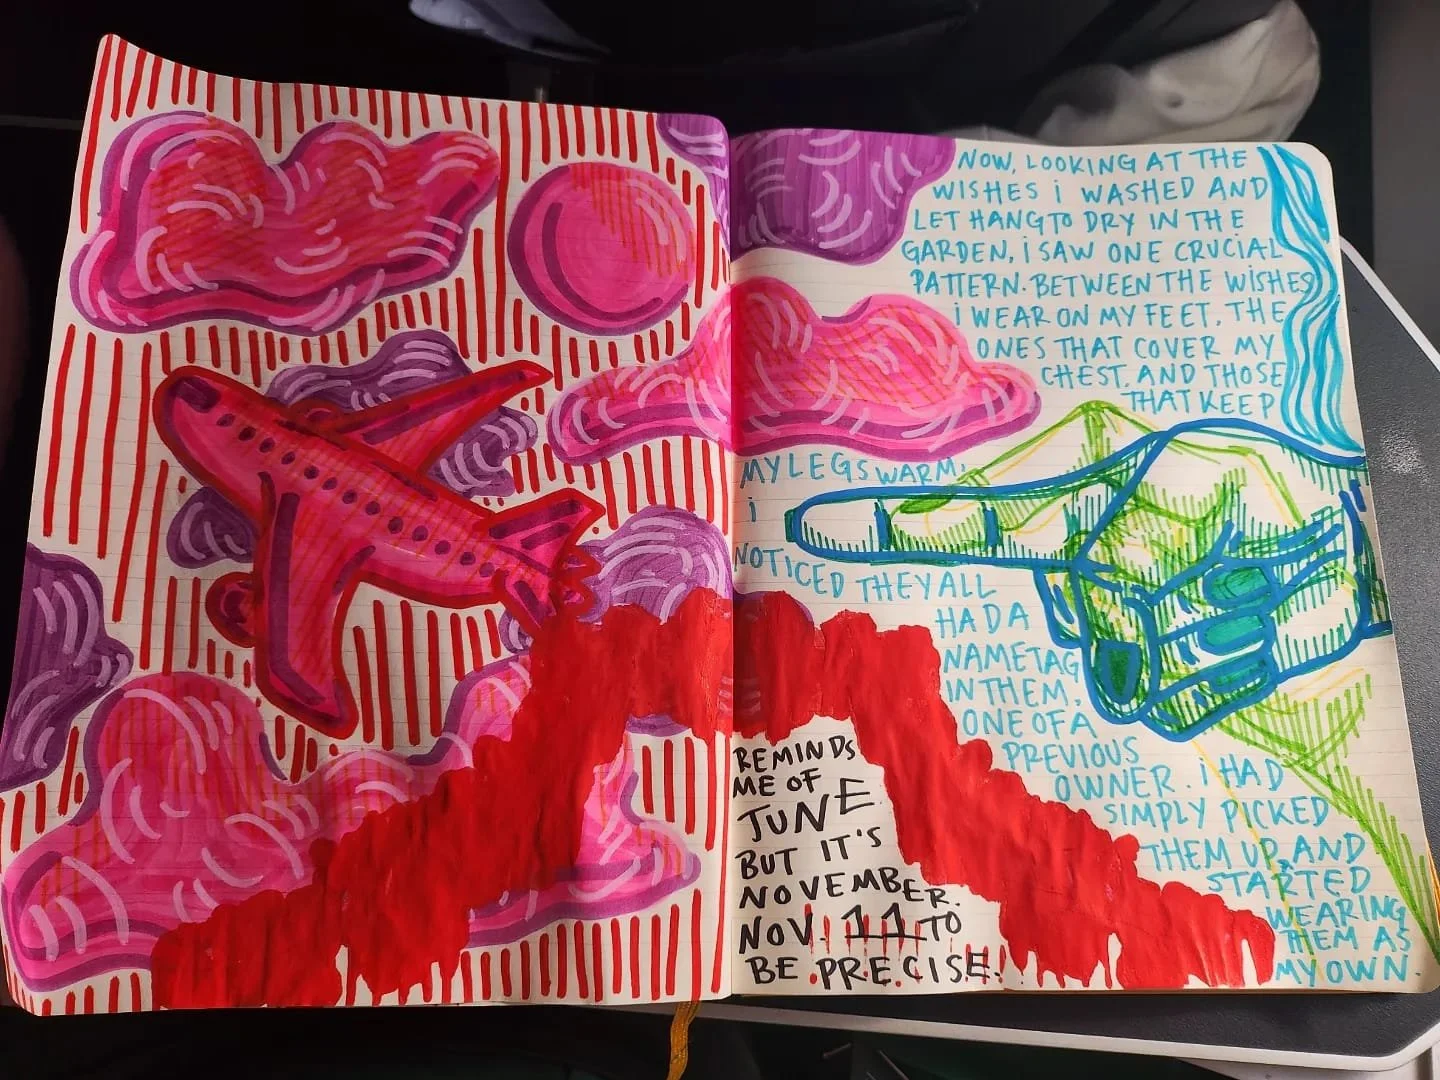 NOW, LOOKING AT THE
WISHES i WASHED AND
LET HANG TO DRY IN THE
GARDEN, i SAW ONE CRUCIAL
PATTERN. BETWEEN THE WISHES
i WEAR ON MY FEET, THE
ONES THAT COVER MY
CHEST, AND THOSE
THAT KEEP
MY LEGS WARM,
i
NOTICED THEY ALL
HAD A
NAMETAG
IN THEM,
ONE OF A
PREVIOUS
OWNER. i HAD
SIMPLY PICKED
THEM UP AND
STARTED
WEARING
THEM AS
MY OWN.
REMINDS
ME OF
JUNE
BUT IT'S
NOVEMBER.
NOV. 11 TO
BE PRECISE.